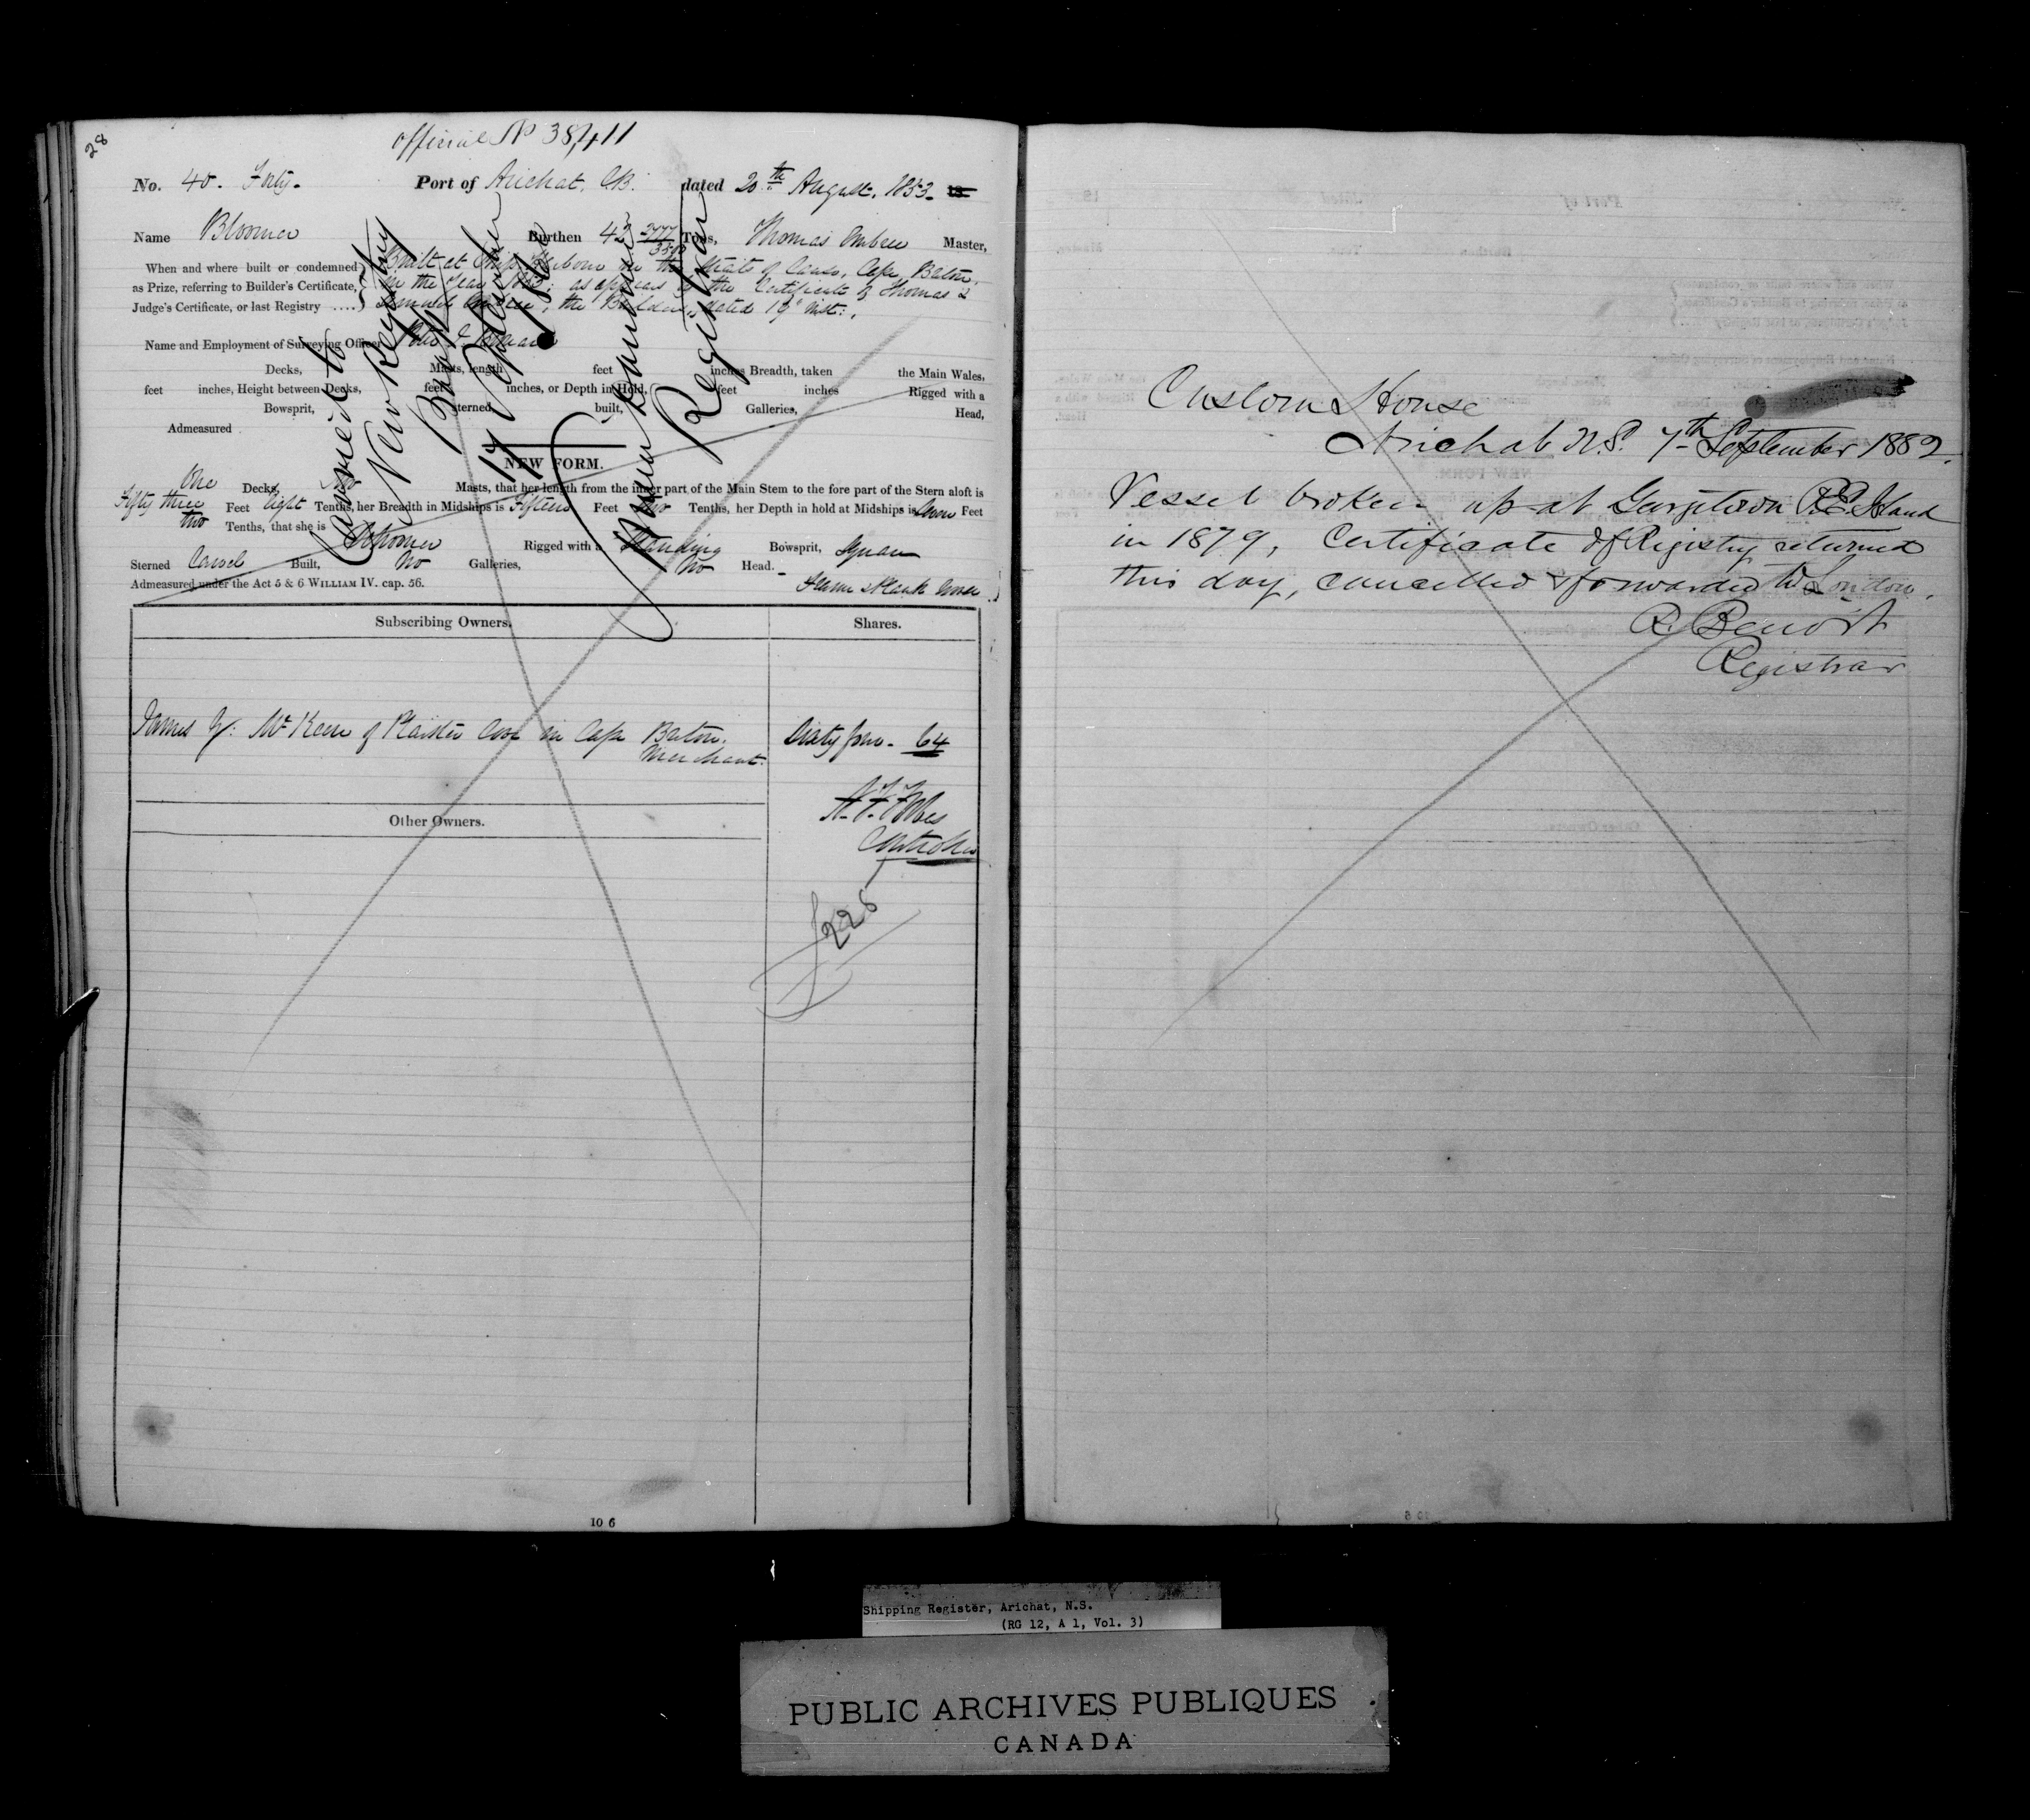 28
official No 38,411
No. 40. Forty. Port of Arichat, C.B. dated 20th August, 1853. 18
Name Bloomer Burthen 42 2777/3500 Tons, Thomas Embree Master,
When and where built or condemned as Prize, referring to Builder's Certificate, Judge's Certificate, or last Registry ....
Built at Ship Harbour in the Strait of Canso, Cape Breton,
in the Year 1853; as appears by the Certificate of Thomas &
Samuel Embree, the Builders, dated 19th inst:,
Name and Employment of Surveying Officer
Decks, Masts, length feet inches Breadth, taken the Main Wales,
feet inches, Height between Decks, feet inches, or Depth in Hold, feet inches Rigged with a
Bowsprit, sterned, built, Galleries, Head,
Admeasured
NEW FORM.
One Decks, Two Masts, that her length from the inner part of the Main Stem to the fore part of the Stern aloft is
Fifty three Feet Eight Tenths, her Breadth in Midships is Fifteen Feet Two Tenths, her Depth in hold at Midships is Seven Feet
two Tenths, that she is Schooner Rigged with a Standing Bowsprit, Square
Sterned Carvel Built, No Galleries, No Head.
Admeasured under the Act 5 & 6 WILLIAM IV. cap. 56.
Frame & Plank
Carried to
New Registry
Book
17 September
Registrar
Subscribing Owners. Shares.
James G. McKeen of Plaister Cove in Cape Breton. Sixty four - 64
Merchant.
Controller
Other Owners.
226
10 6
Custom House
Arichat N.S. 7th September 1882.
Vessel broken up at Georgetown P.E. Island
in 1879, Certificate of Registry returned
this day, cancelled & forwarded to London.
R. Benoit
Registrar
Shipping Register, Arichat, N.S.
(RG 12, A 1, Vol. 3)
PUBLIC ARCHIVES PUBLIQUES
CANADA